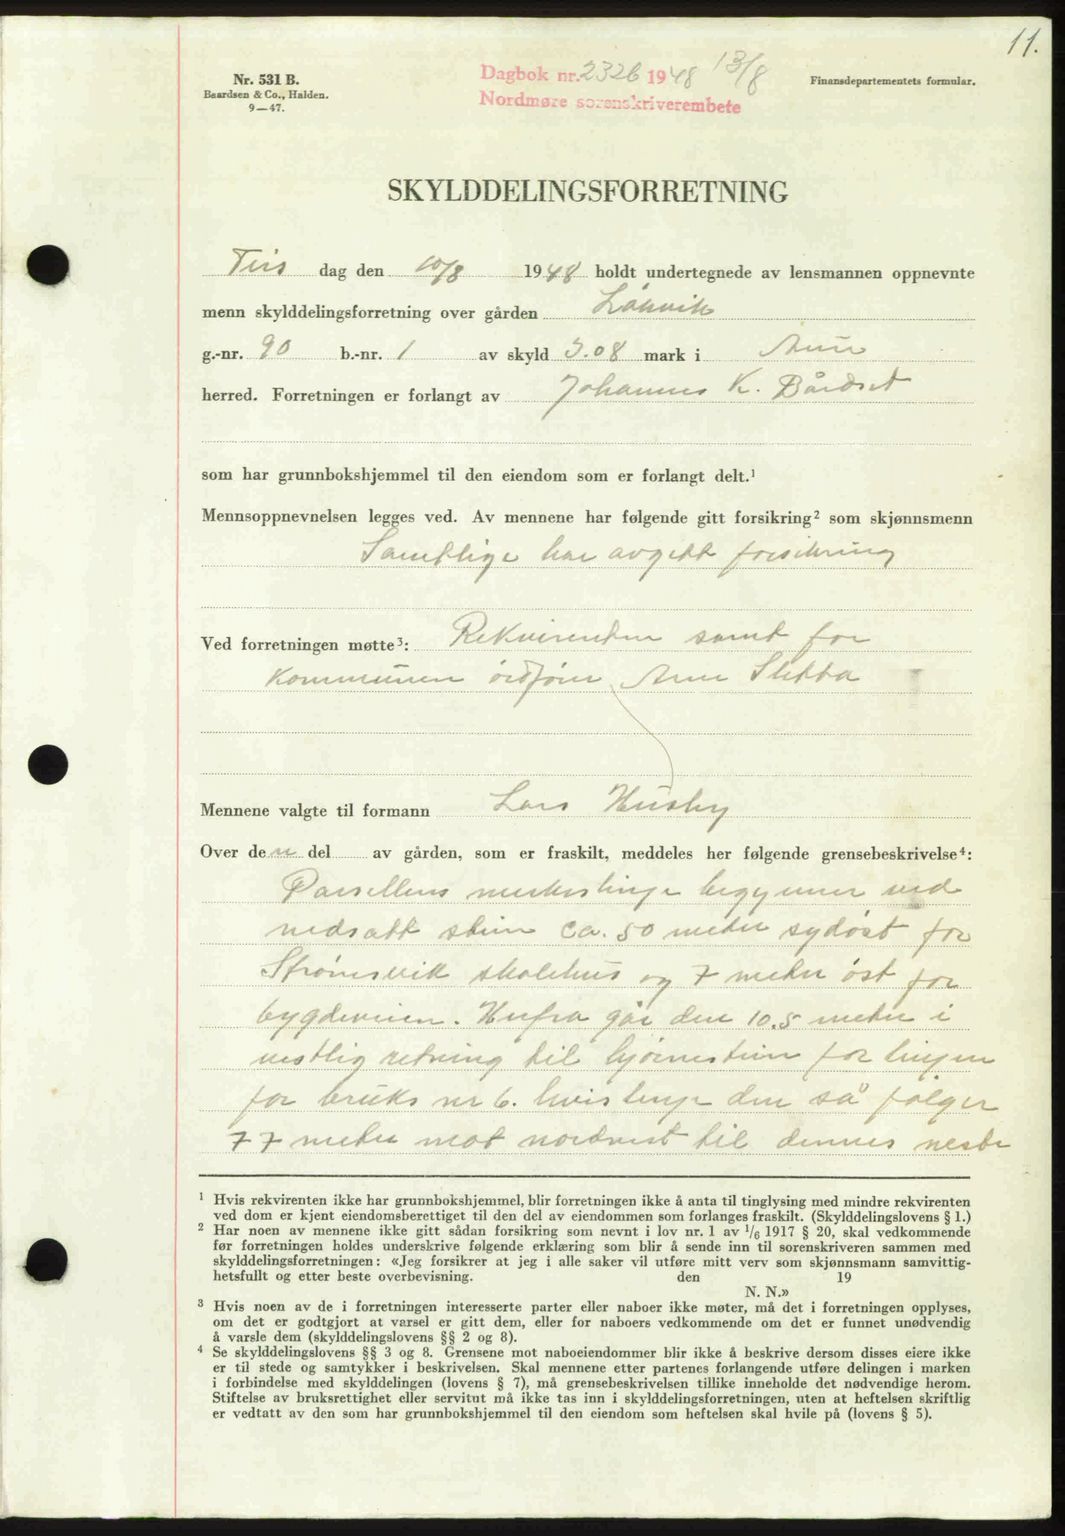 11.
Nr. 531 B.
Baardsen & Co., Halden.
9—47.
Dagbok nr. 2326 1948 13/8
Nordmøre sorenskriverembete
Finansdepartementets formular.
SKYLDDELINGSFORRETNING
Tirs dag den 10/8 1948 holdt undertegnede av lensmannen oppnevnte
menn skylddelingsforretning over gården
g.-nr. 90 b.-nr. 1 av skyld 3.08 mark i Aure
herred. Forretningen er forlangt av Johannes K. Bårdset
som har grunnbokshjemmel til den eiendom som er forlangt delt.¹
Mennsoppnevnelsen legges ved. Av mennene har følgende gitt forsikring² som skjønnsmenn
Samtlige har avgitt forsikring
Ved forretningen møtte³: Rekvirenten samt for
kommunen ordføreren Arne
Mennene valgte til formann Lars Husby
Over den del av gården, som er fraskilt, meddeles her følgende grensebeskrivelse⁴:
Parsellens merkeslinje begynner ved
nedsatt stein ca. 50 meter sydøst for
Strømsvik skolehus og 7 meter øst for
bygdeveien. Herfra går den 10.5 meter i
vestlig retning til hjørnestein for linjen
for bruks nr 6. hvis linje den så følger
77 meter mot nordvest til dennes neste
¹ Hvis rekvirenten ikke har grunnbokshjemmel, blir forretningen ikke å anta til tinglysing med mindre rekvirenten
ved dom er kjent eiendomsberettiget til den del av eiendommen som forlanges fraskilt. (Skylddelingslovens § 1.)
² Har noen av mennene ikke gitt sådan forsikring som nevnt i lov nr. 1 av 1/6 1917 § 20, skal vedkommende
før forretningen holdes underskrive følgende erklæring som blir å sende inn til sorenskriveren sammen med
skylddelingsforretningen: «Jeg forsikrer at jeg i alle saker vil utføre mitt verv som skjønnsmann samvittig-
hetsfullt og etter beste overbevisning. den 19
N. N.»
³ Hvis noen av de i forretningen interesserte parter eller naboer ikke møter, må det i forretningen opplyses,
om det er godtgjort at varsel er gitt dem, eller for naboers vedkommende om det er funnet unødvendig
å varsle dem (skylddelingslovens §§ 2 og 8).
⁴ Se skylddelingslovens §§ 3 og 8. Grensene mot naboeiendommer blir ikke å beskrive dersom disses eiere ikke
er til stede og samtykker i beskrivelsen. Skal mennene etter partenes forlangende utføre delingen i marken
i forbindelse med skylddelingen (lovens § 7), må grensebeskrivelsen tillike inneholde det nødvendige herom.
Stiftelse av bruksrettighet eller servitut må ikke tas inn i skylddelingsforretningen, uten at heftelsen skriftlig
er vedtatt av den som har grunnbokshjemmel til den eiendom som heftelsen skal hvile på (lovens § 5).